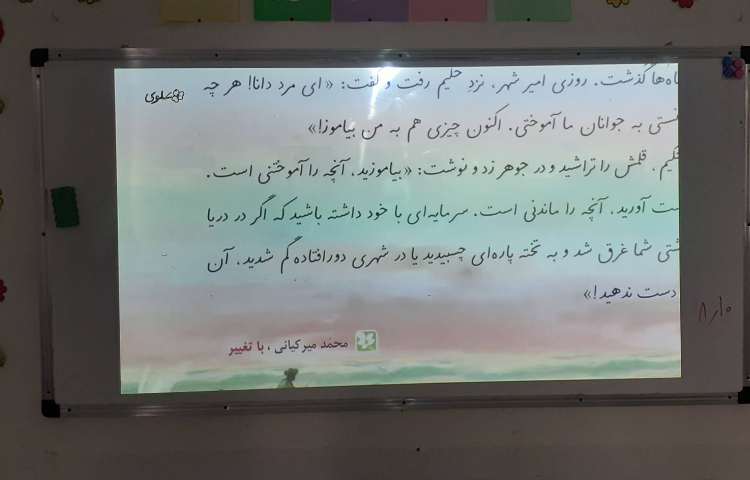 علوی
ماه‌ها گذشت. روزی امیر شهر، نزد حلیم رفت و گفت: «ای مرد دانا! هر چه
نستی به جوانان ما آموختی. اکنون چیزی هم به من بیاموز!»
حکیم، قلمش را تراشید و در جوهر زد و نوشت: «بیاموزید، آنچه را آموختنی است.
ست آورید، آنچه را ماندنی است. سرمایه‌ای با خود داشته باشید که اگر در دریا
شتی شما غرق شد و به تخته پاره‌ای چسبیدید یا در شهری دورافتاده گم شدید، آن
دست ندهید!»
محمّد میرکیانی، با تغییر